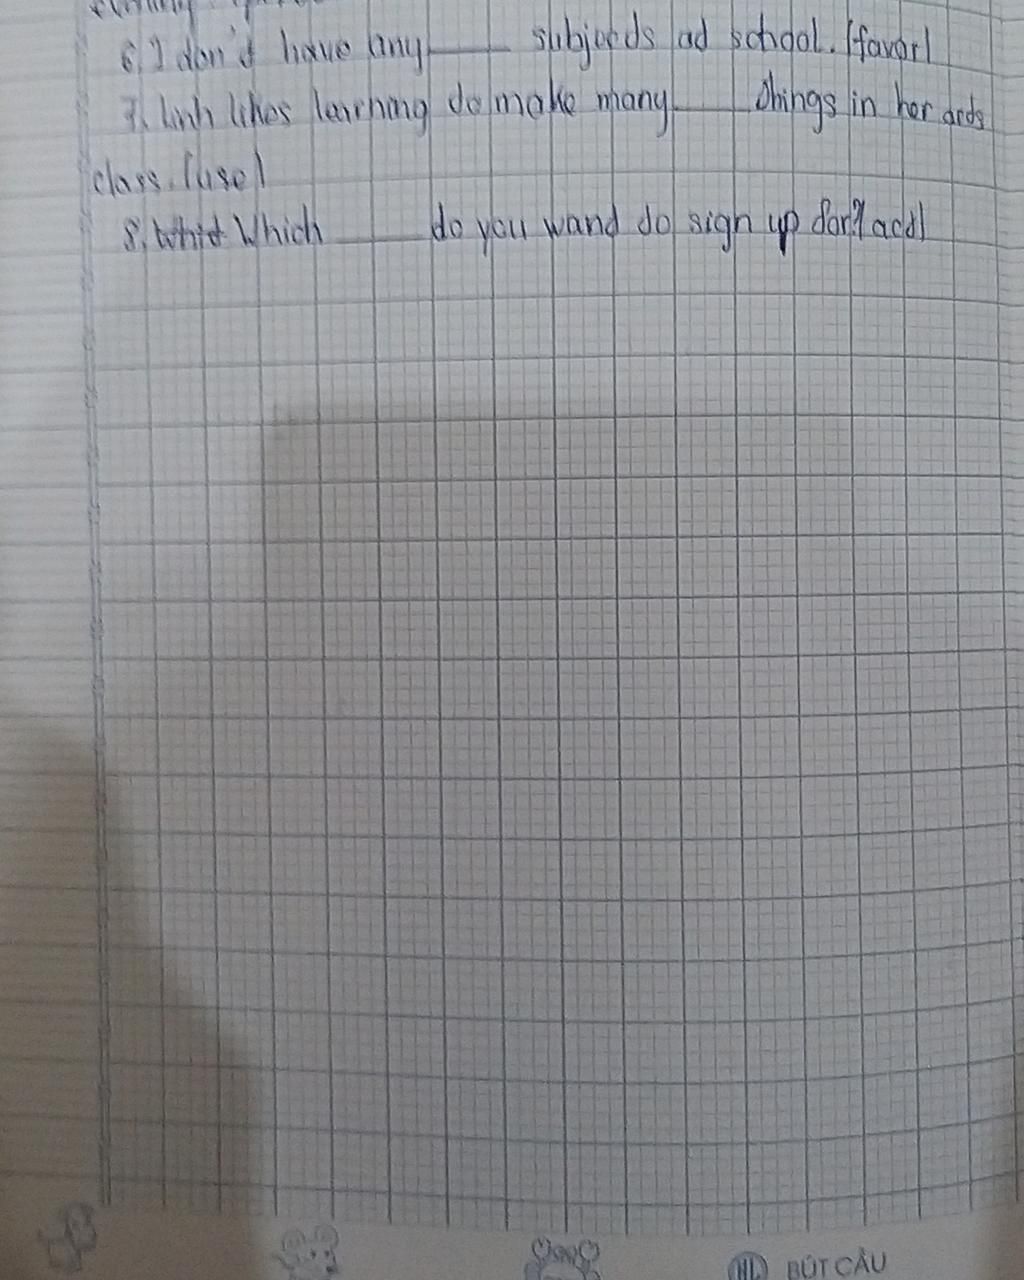 6, I don't have any____ subjects at school. (favor)
7. Linh likes learning to make many____ things in her arts
class. (use)
8. Which ____ do you want to sign up for? (act)
HL BÚT CÂU